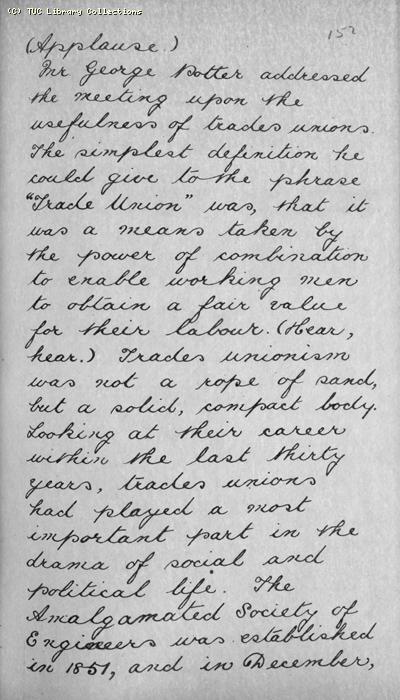 (C) TUC Library Collections
152
(Applause.)
Mr George Potter addressed
the meeting upon the
usefulness of trades unions.
The simplest definition he
could give to the phrase
"Trade Union" was, that it
was a means taken by
the power of combination
to enable working men
to obtain a fair value
for their labour. (Hear,
hear.) Trades unionism
was not a rope of sand,
but a solid, compact body.
Looking at their career
within the last thirty
years, trades unions
had played a most
important part in the
drama of social and
political life. The
Amalgamated Society of
Engineers was established
in 1851, and in December,